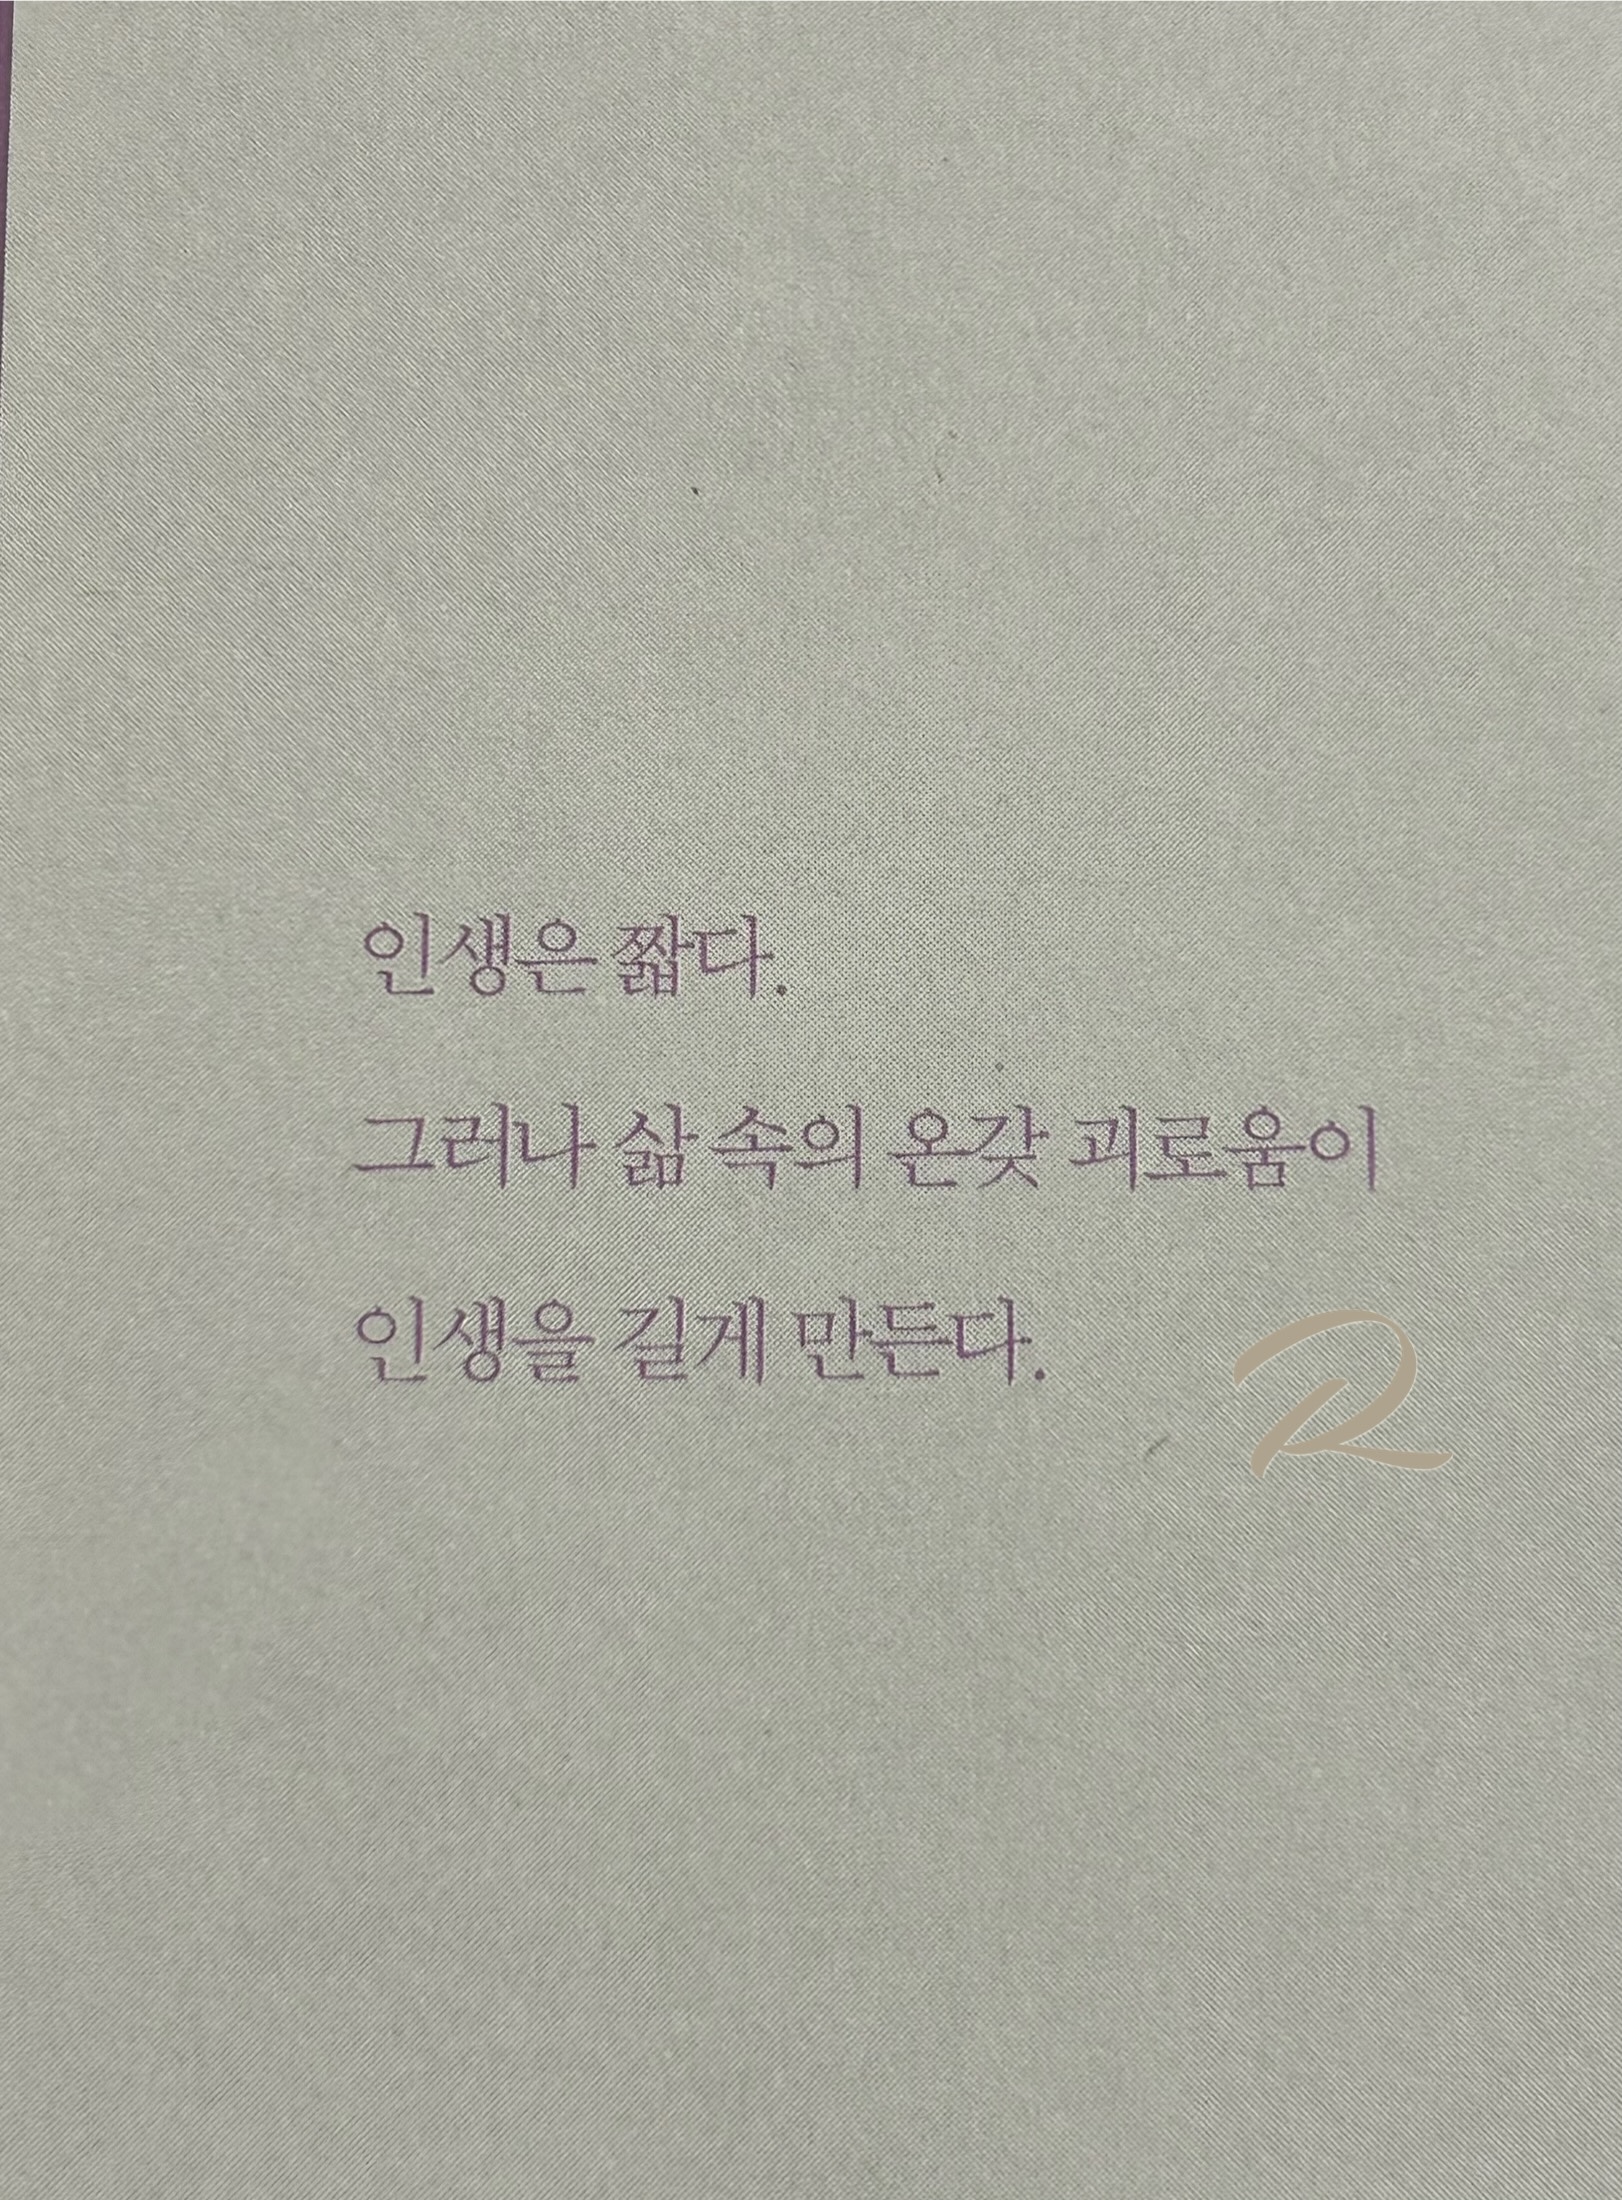 인생은 짧다.
그러나 삶 속의 온갖 괴로움이
인생을 길게 만든다.
R